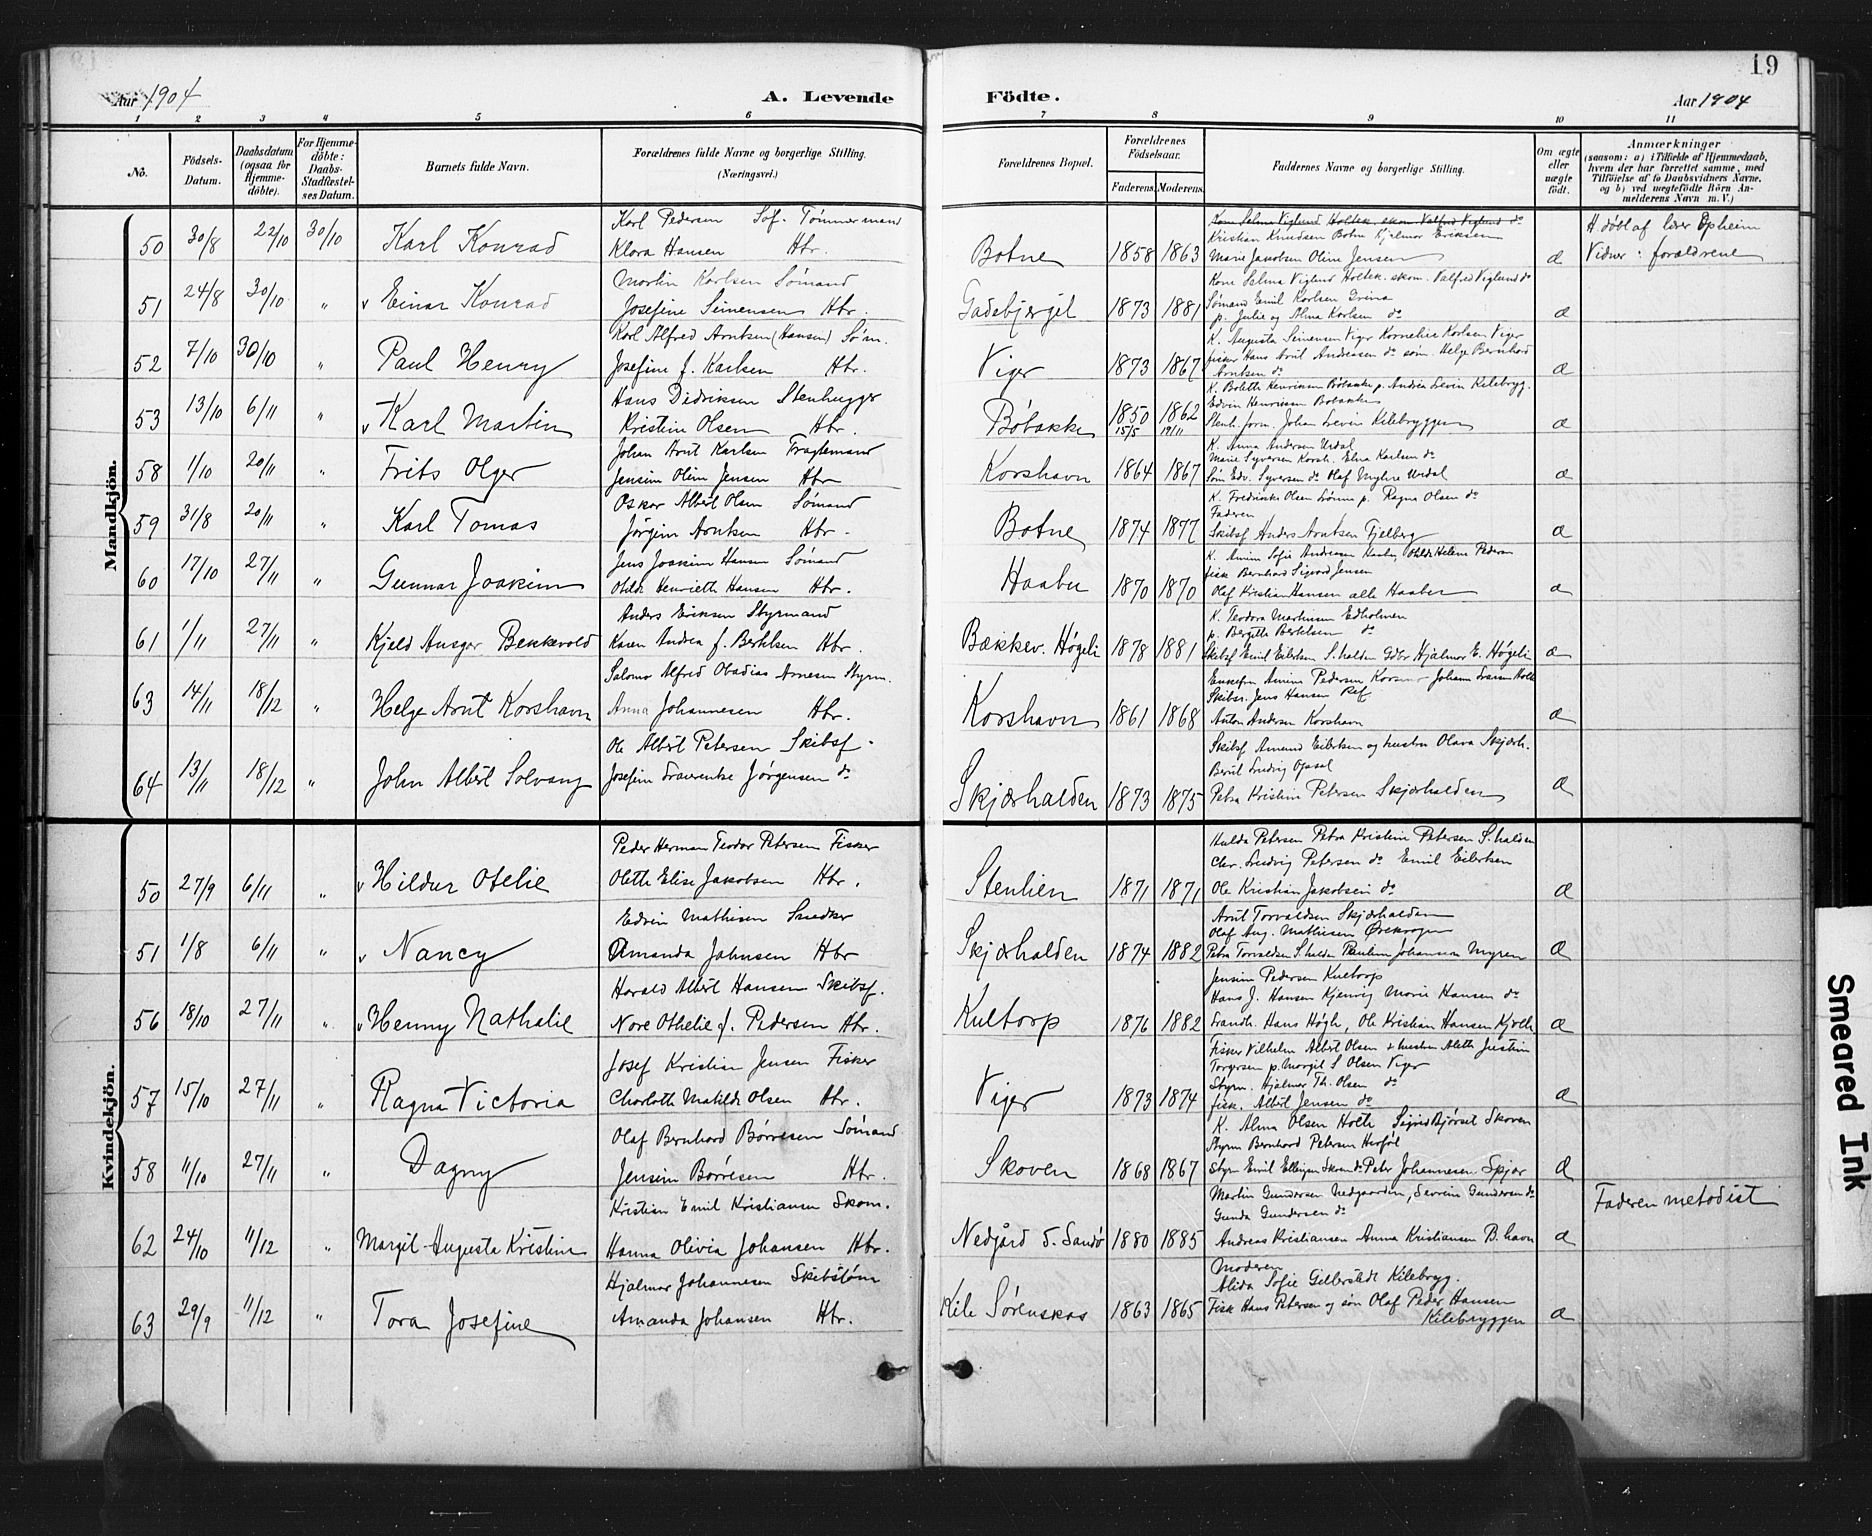 19
Aar 1904
A. Levende
Födte.
Aar 1904
1 2 3 4 5 6 7 8 9 10 11
No.
Födsels-
Datum.
Daabsdatum
(ogsaa for
Hjemme-
döbte).
For Hjemme-
döbte:
Daabs-
Stadfæstel-
ses Datum.
Barnets fulde Navn.
Forældrenes fulde Navne og borgerlige Stilling.
(Næringsvei.)
Forældrenes Bopæl.
Forældrenes
Födselsaar.
Faderens. Moderens.
Faddernes Navne og borgerlige Stilling.
Om ægte
eller
uægte
födt.
Anmærkninger
(saasom: a) i Tilfælde af Hjemmedaab,
hvem der har forrettet samme, med
Tilföielse af to Daabsvidners Navne,
og b) ved uegtefödte Börn An-
melderens Navn m. V.)
Mandkjön.
50 30/8 22/10 30/10 Karl Konrad
Karl Pedersen Tømmermand
Klara Hansen Hbr.
Botne 1858 1863
Kristian Knudsen Botne Hjalmar Eriksen
Marie Jakobsen Oline Jensen
æ
H.døbt af lærer Opheim
Vidner: forældrene
51 24/8 30/10 " Einar Konrad
Martin Karlsen Sømand
Josefine Simensen Hbr.
Gadebjerget 1873 1881
Kone Selma Viglund Holtek. skom. Valfred Viglund do
Sømand Emil Karlsen Grina
p. Julie og Alma Karlsen do
æ
52 7/10 30/10 " Paul Henry
Karl Alfred Arntsen (Hansen) Søm.
Josefine f. Karlsen Hbr.
Viger 1873 1867
K. Augusta Simensen Viger Kornelie Karlsen Viger
fisker Hans Arnt Andreasen do søm. Helge Bernhard
Arntsen do
æ
53 13/10 6/11 " Karl Martin
Hans Didriksen Stenhugger
Kristine Olsen Hbr.
Bøbakke 1850 1862
15/5 19/11
K. Bolette Henriksen Bøbakke p. Andrea Levin Kilebryg.
Edvin Henriksen Bobakke
Stenh. form. Johan Levin Kilebryggen
æ
58 1/10 20/11 " Frits Olger
Johan Arnt Karlsen Fragtemand
Jensine Oline Jensen Hbr
Korshavn 1864 1867
K. Anna Andersen Urdal
Marie Syversen Korsh. Elna Karlsen do
Søm Edv. Syversen do Olaf Myhre Urdal
æ
59 31/8 20/11 " Karl Tomas
Oskar Albert Olsen Sømand
Jørgine Arntsen Hbr.
Botne 1874 1877
K. Fredrikke Olsen Grønne p. Ragna Olsen do
Faderen
Skibsf Anders Arntsen Fjelberg
æ
60 17/10 27/11 " Gunnar Joakim
Jens Joakim Hansen Sømand
Otilde Henriette Hansen Hbr.
Haabu 1870 1870
fisk Bernhard Sigvard Jensen
Olaf Kristian Hansen alle Haabu
æ
61 1/11 27/11 " Kjeld Ansgar Bekkevold
Anders Eriksen Styrmand
Karen Andrea f. Bertelsen Hbr.
Bækkev. Høgeli 1878 1881
K. Teodora Martinsen Edholmen
p. Bergitte Bertelsen do
Skibsf Emil Eilertsen S.halden Gdbr Hjalmar E. Høgeli
æ
63 14/11 18/12 " Helge Arnt Korshavn
Salomo Alfred Obadias Arnesen Styrm.
Anna Johannesen Hbr.
Korshavn 1861 1868
Skibsr. Jens Hansen Ref
Anton Andersen Korshavn
æ
64 13/11 18/12 " John Albert Solvang
Ole Albert Petersen Skibsf.
Josefine Laurentze Jørgensen do
Skjærhalden 1873 1875
Skibsf Amund Eilertsen og hustru Olava Skjærh.
Berul Ludvig Opsal
Petra Kristine Petersen Skjærhalden
æ
Kvindekjön.
50 27/9 6/11 " Hildur Otelie
Peder Herman Teodor Petersen Fisker
Olette Elise Jakobsen Hbr.
Stenlien 1871 1871
Hulda Petersen Petra Kristine Petersen S.halden
Chr. Ludvig Petersen do Emil Eilertsen
Ole Kristian Jakobsen do
æ
51 1/8 6/11 " Nancy
Edvin Mathisen Snedker
Amanda Johnsen Hbr
Skjærhalden 1874 1882
Arnt Torvaldsen Skjærhalden
Olaf Aug. Mathisen Ørekrogen
Petra Torvaldsen S.halden Pauline Johannesen Myren
æ
56 18/10 27/11 " Henny Nathalie
Harald Albert Hansen Skibsf.
Nore Othelie f. Pedersen Hbr.
Kultorp 1876 1882
Jensine Pedersen Kultorp
Hans J. Hansen Kjenvig Marie Hansen do
Landh. Hans Høgh, Ole Kristian Hansen
æ
57 15/10 27/11 " Ragna Victoria
Josef Kristian Jensen Fisker
Charlotte Matilde Olsen Hbr.
Viger 1873 1874
Fisker Vilhelm Albert Olsen & hustru Alette Justine
Torgersen p. Margit S Olsen Viger
Styrm. Hjalmar Th. Olsen do
fisk. Albert Jensen do
æ
58 11/10 27/11 " Dagny
Olaf Bernhard Børresen Sømand
Jensine Børresen Hbr.
Skoven 1868 1867
K. Alma Olsen Holte Sigrid Bjørset Skoven
Styrm Bernhard Petersen Herføl
Styrm Emil Ellingsen Skoven do Peter Johannesen Spjær
æ
62 24/10 11/12 " Margit Augusta Kristine
Kristian Emil Kristiansen Skom.
Hanna Olivia Johansen Hbr.
Nedgård S. Sandø 1880 1885
Martin Gundersen Nedgaarden, Severin Gundersen do
Gunda Gundersen do
Andreas Kristiansen Anna Kristiansen B.havn
æ
Faderen metodist
63 29/9 11/12 " Tora Josefine
Hjalmar Johannesen Skibstøm
Amanda Johansen Hbr.
Kile Sørenskas 1863 1865
Moderen
Alida Sofie Gellerstedt Kilebryg.
Fisk Hans Petersen og søn Olaf Peder Hansen
Kilebryggen
æ
Smeared Ink